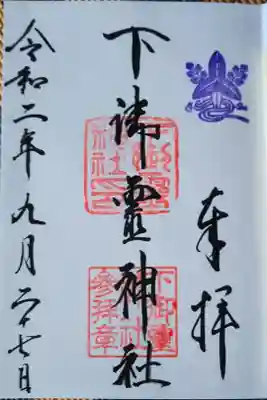 奉拝
下御靈神社
下御靈社参拝章
令和二年九月二十七日